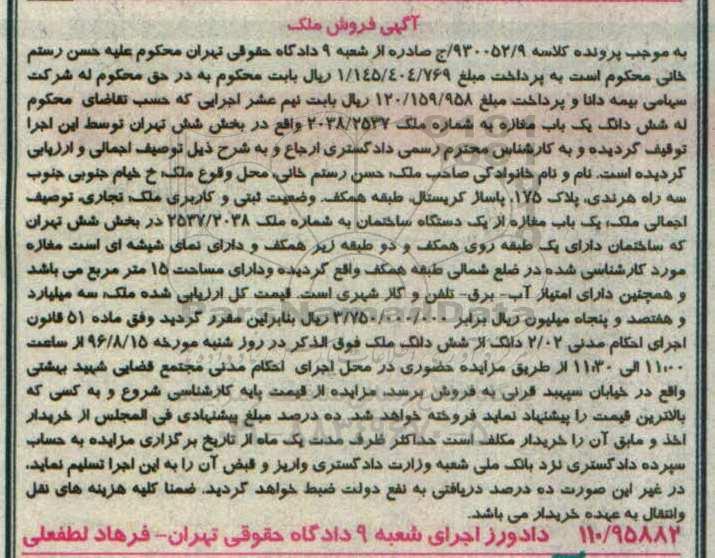 آگهی فروش ملک
به موجب پرونده کلاسه ۹۳۰۰۵۲/۹/ج صادره از شعبه ۹ دادگاه حقوقی تهران محکوم علیه حسن رستم
خانی محکوم است به پرداخت مبلغ ۱/۱۴۵/۴۰۴/۷۶۹ ریال بابت محکوم به در حق محکوم له شرکت
سهامی بیمه دانا و پرداخت مبلغ ۱۲۰/۱۵۹/۹۵۸ ریال بابت نیم عشر اجرایی که حسب تقاضای محکوم
له شش دانگ یک باب مغازه به شماره ملک ۲۰۳۸/۲۵۳۷ واقع در بخش شش تهران توسط این اجرا
توقیف گردیده و به کارشناس محترم رسمی دادگستری ارجاع و به شرح ذیل توصیف اجمالی و ارزیابی
گردیده است. نام و نام خانوادگی صاحب ملک: حسن رستم خانی، محل وقوع ملک: خ خیام جنوبی جنوب
سه راه هرندی، پلاک ۱۷۵، پاساژ کریستال، طبقه همکف. وضعیت ثبتی و کاربری ملک: تجاری، توصیف
اجمالی ملک: یک باب مغازه از یک دستگاه ساختمان به شماره ملک ۲۵۳۷/۲۰۳۸ در بخش شش تهران
که ساختمان دارای یک طبقه روی همکف و دو طبقه زیر همکف و دارای نمای شیشه ای است مغازه
مورد کارشناسی شده در ضلع شمالی طبقه همکف واقع گردیده ودارای مساحت ۱۵ متر مربع می باشد
و همچنین دارای امتیاز آب- برق- تلفن و گاز شهری است. قیمت کل ارزیابی شده ملک: سه میلیارد
و هفتصد و پنجاه میلیون ریال برابر ۳/۷۵۰/۰۰۰/۰۰۰ ریال بنابراین مقرر گردید وفق ماده ۵۱ قانون
اجرای احکام مدنی ۲/۰۲ دانگ از شش دانگ ملک فوق الذکر در روز شنبه مورخه ۹۶/۸/۱۵ از ساعت
۱۱:۰۰ الی ۱۱:۳۰ از طریق مزایده حضوری در محل اجرای احکام مدنی مجتمع قضایی شهید بهشتی
واقع در خیابان سپهبد قرنی به فروش برسد. مزایده از قیمت پایه کارشناسی شروع و به کسی که
بالاترین قیمت را پیشنهاد نماید فروخته خواهد شد. ده درصد مبلغ پیشنهادی فی المجلس از خریدار
اخذ و مابق آن را خریدار مکلف است حداکثر ظرف مدت یک ماه از تاریخ برگزاری مزایده به حساب
سپرده دادگستری نزد بانک ملی شعبه وزارت دادگستری واریز و قبض آن را به این اجرا تسلیم نماید،
در غیر این صورت ده درصد دریافتی به نفع دولت ضبط خواهد گردید. ضمنا کلیه هزینه های نقل
وانتقال به عهده خریدار می باشد.
۱۱۰/۹۵۸۸۲ دادورز اجرای شعبه ۹ دادگاه حقوقی تهران- فرهاد لطفعلی